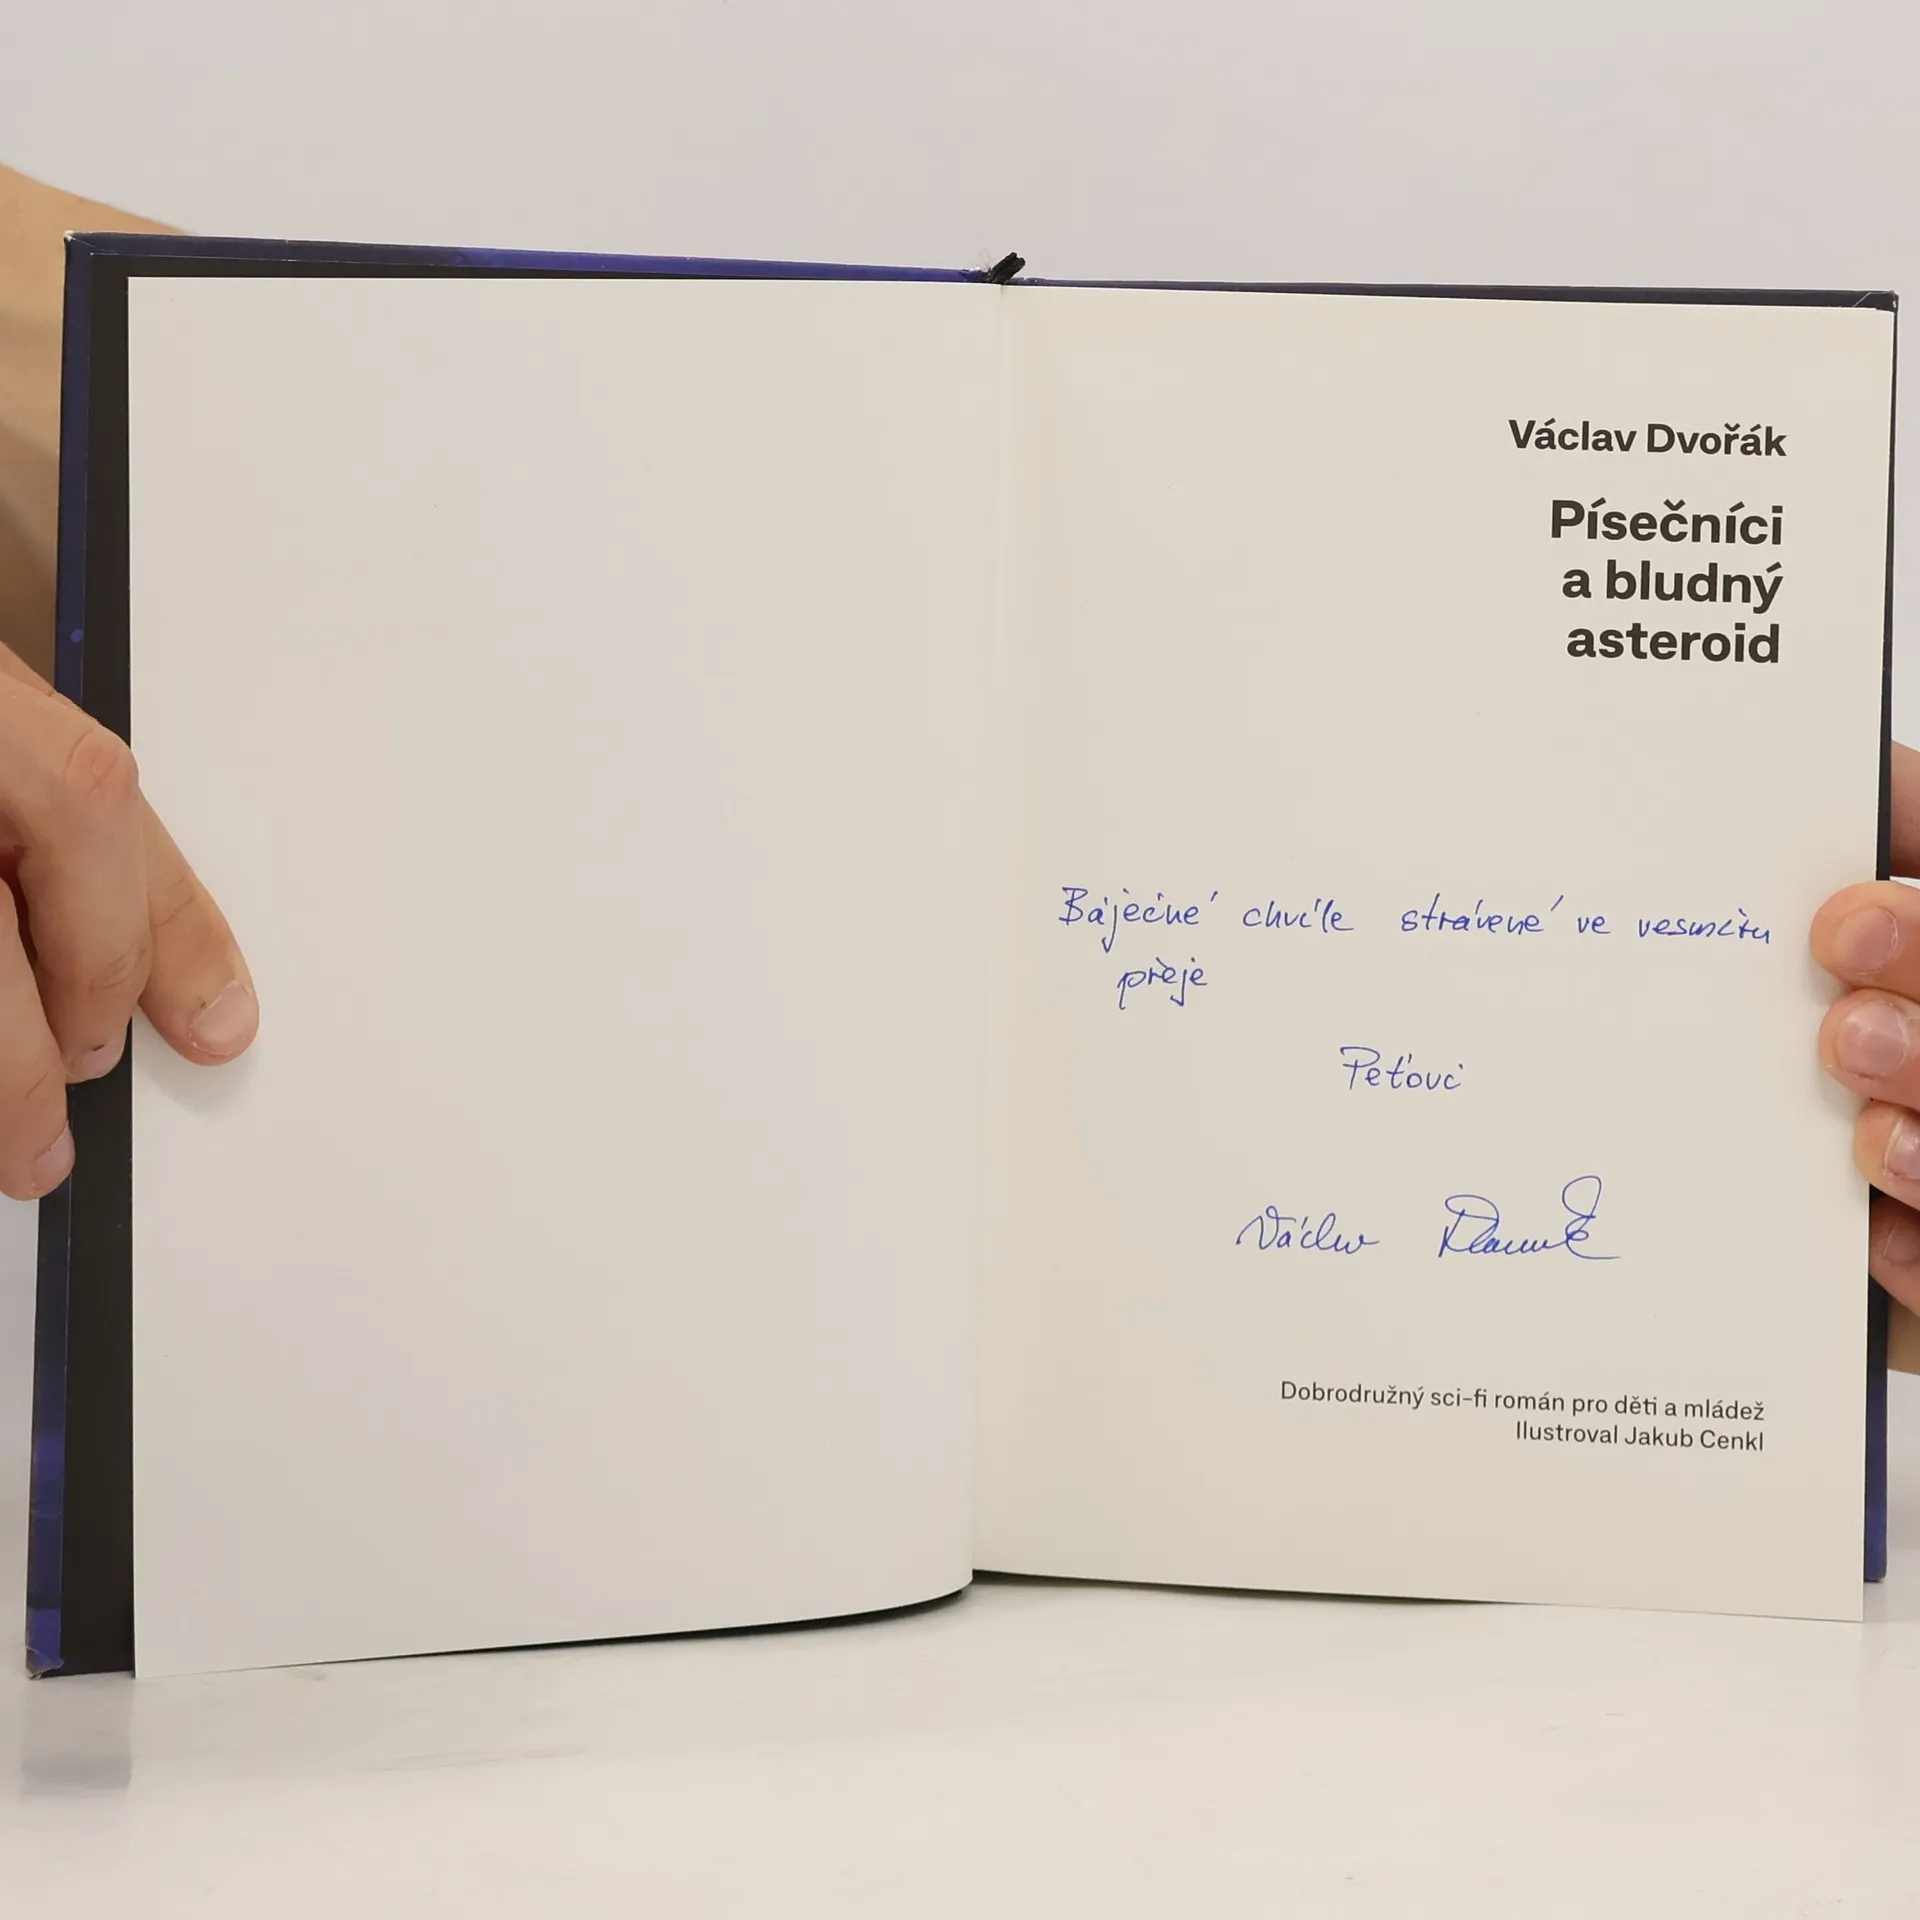 Václav Dvořák
Písečníci
a bludný
asteroid
Báječné chvíle strávené ve vesmíru
přeje
Peťovi
Václav Dvořák
Dobrodružný sci-fi román pro děti a mládež
Ilustroval Jakub Cenkl